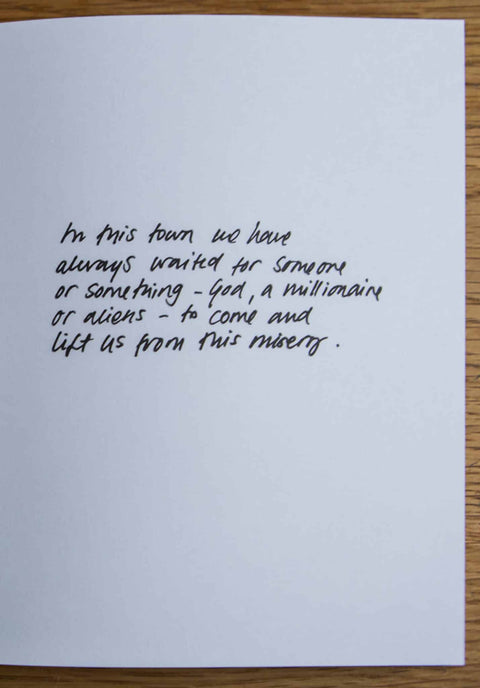 In this town we have
always waited for someone
or something - God, a millionaire
or aliens - to come and
lift us from this misery.